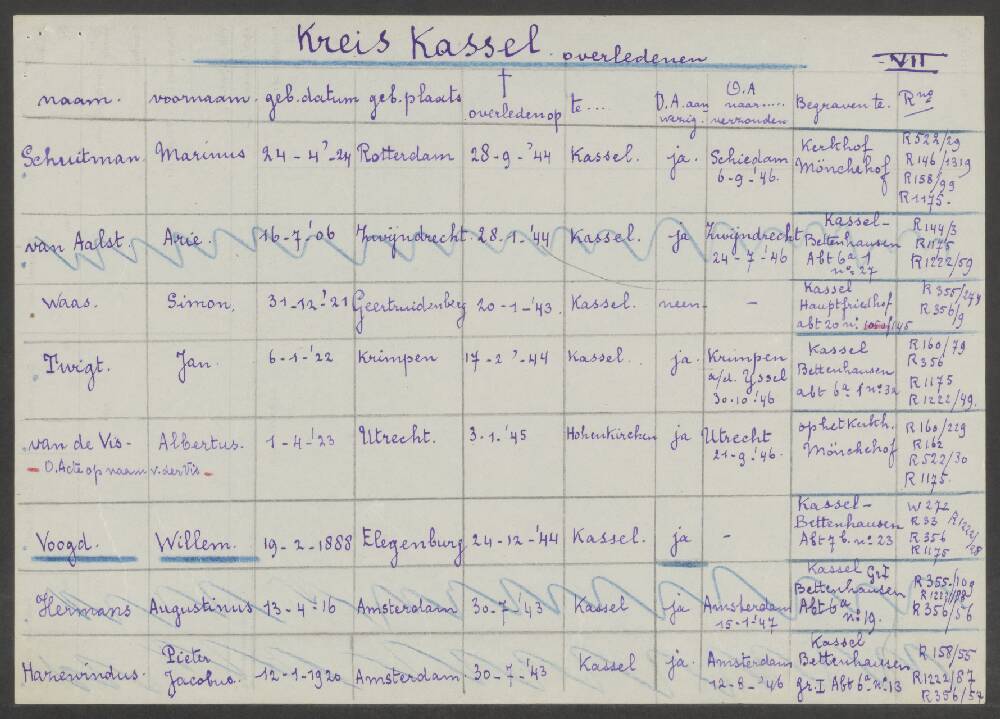 Kreis Kassel. overledenen
VII
naam. voornaam. geb. datum geb. plaats † overleden op te.... D.A. aan wezig. O.A naar..... verzonden. Begraven te. R no
Schuitman. Marinus 24-4-'24 Rotterdam 28-9-'44 Kassel. ja. Schiedam 6-9-'46. Kerkhof Mönchehof R522/29 R146/1319 R158/99 R1175.
van Aalst. Arie. 16-7-'06 Zwijndrecht 28-1-'44 Kassel. ja Zwijndrecht 24-7-'46 Kassel-Bettenhausen Abt 6a 1 no. 27 R144/3 R1175 R1222/59
Waas. Simon. 31-12-'21 Geertruidenberg 20-1-'43. Kassel. neen - Kassel Hauptfriedhof abt 20 no. 145 R355/274 R356/9
Twigt. Jan. 6-1-'22 Krimpen 17-2-'44 Kassel. ja. Krimpen a/d. Yssel 30-10-'46 Kassel Bettenhausen abt 6a 1 no 32 R160/79 R356 R1175 R1222/49.
van de Vis- Albertus. 1-4-'23 Utrecht. 3-1-'45 Hohenkirchen ja Utrecht 21-9-'46. op het Kerkh. Mönchehof R160/229 R162 R522/30 R1175.
- O. Acte op naam v. der Vis -
Voogd. Willem. 19-2-1888 Elegenburg 24-12-'44 Kassel. ja - Kassel-Bettenhausen Abt 7 b. no. 23 W272 R33 R356 R1175
Hermans Augustinus 13-4-'16 Amsterdam 30-7-'43 Kassel ja Amsterdam 15-1-'47 Kassel Gr I Bettenhausen Abt 6a no. 19. R355/109 R1222/88 R356/56
Hariewindus. Pieter Jacobus. 12-1-1920 Amsterdam 30-7-'43 Kassel ja. Amsterdam 12-8-'46 Kassel Bettenhausen gr I Abt 6a no. 13 R158/55 R1222/87 R356/54